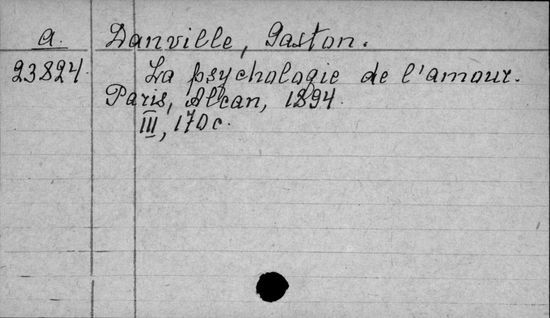 a. Danville, Gaston.
23824. La psychologie de l'amour.
Paris, Alcan, 1894.
III, 170 c.